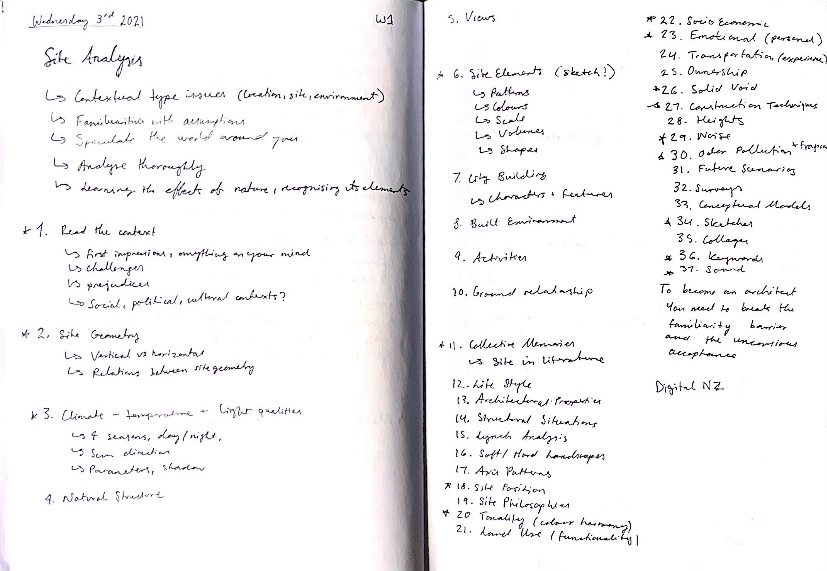 Wednesday 3rd 2021
W1
Site Analysis
↳ Contextual type issues (location, site, environment)
↳ Familiarities with assumptions
↳ Speculate the world around you
↳ Analyse thoroughly
↳ Learning the effects of nature, recognising its elements
* 1. Read the context
↳ First impressions, anything on your mind
↳ Challenges
↳ prejudices
↳ Social, political, cultural contexts?
* 2. Site Geometry
↳ Vertical vs horizontal
↳ Relations between site geometry
* 3. Climate - temperature + Light qualities
↳ 4 seasons, day/night,
↳ Sun direction
↳ Parameters, Shadow
4. Natural Structure
5. Views
* 6. Site Elements (sketch!)
↳ Patterns
↳ Colours
↳ Scale
↳ Volumes
↳ Shapes
7. City Building
↳ Characters + Features
8. Built Environment
9. Activities
10. Ground relationship
* 11. Collective Memories
↳ Site in literature
12. Life Style
13. Architectural Properties
14. Structural Situations
15. Lynch Analysis
16. Soft/Hard landscapes
17. Axis Patterns
* 18. Site Position
19. Site Philosophies
* 20 Tonality (colour harmony)
21. Land Use (functionality)
* 22. Socio Economic
* 23. Emotional (personal)
24. Transportation (experience)
25. Ownership
* 26. Solid Void
* 27. Construction Techniques
28. Heights
* 29. Noise
* 30. Oder Pollution +
31. Future Scenarios
32. Surveys
33. Conceptual Models
* 34. Sketches
35. Collages
* 36. Keywords
* 37. Sound
To become an architect
You need to break the
familiarity barrier
and the unconsious
acceptance
Digital NZ